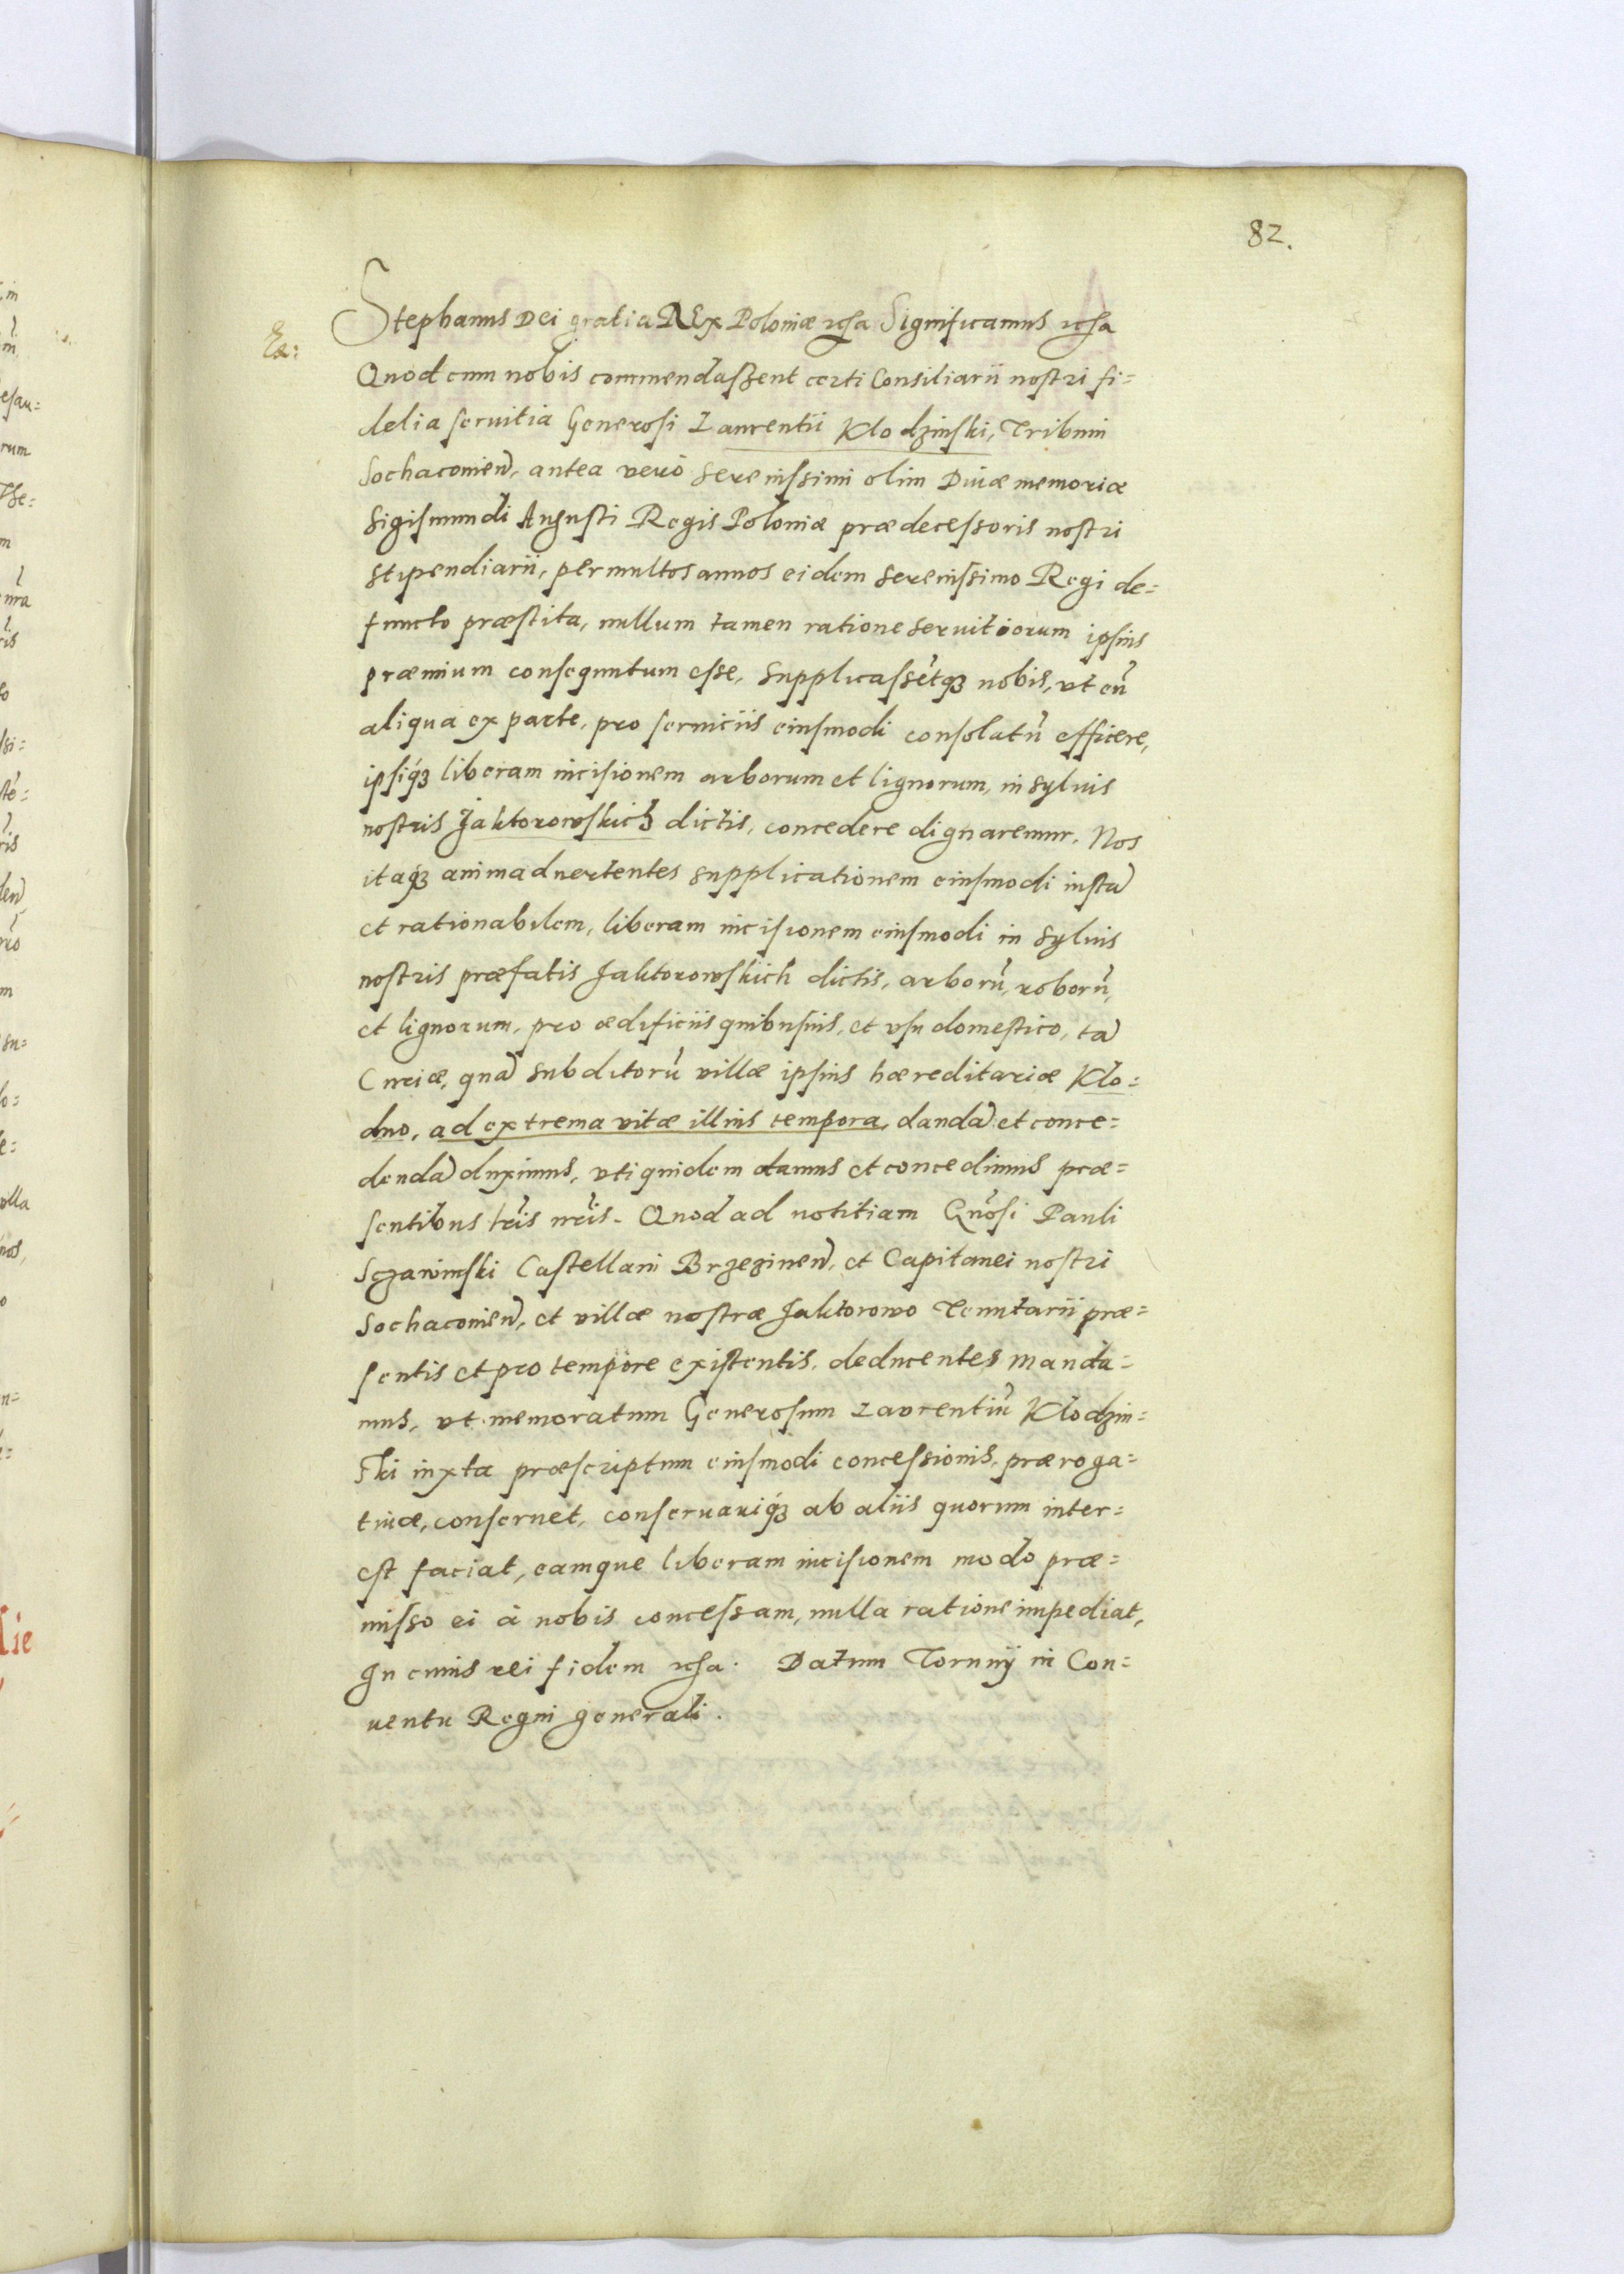 82.
Stephanus Dei gratia REx Poloniæ rcha Significamus rcha
Ex:
Quod cum nobis commendaſsent certi Consiliarii nostri fi=
delia seruitia Generosi Laurentii Klodzinski, Tribuni
Sochaconień, antea verò serenissimi olim Diuæ memoriæ
Sigismundi Augusti Regis Poloniæ prædecessoris nostri
stipendiarii, per multos annos eidem serenissimo Regi de=
functo præstita, nullum tamen ratione seruitiorum ipsius
præmium consequutum esse, supplicassētq3 nobis, vt eū
aliqua ex parte, pro seruiciis eiusmodi consolatū efficere,
ipsiq́3 liberam incisionem arborum et lignorum, in syluis
nostris Jaktorowskich dictis, concedere dignaremur. Nos
itaq́3 animaduertentes supplicationem eiusmodi iustā
et rationabilem, liberam incisionem eiusmodi in syluis
nostris præfatis Jaktorowskich dictis, arborū, roborū,
et lignorum, pro ædificiis quibusuis, et vsu domestico, tā
Curiæ, quā subditorū villæ ipsius hæreditariæ Klo=
dno, ad extrema vitæ illius tempora, dandā et conce=
dendā duximus, vti quidem damus et concedimus præ=
sentibus lrīs nrīs. Quod ad notitiam Gnōsi Pauli
Sczawinski Castellani Brzezineń, et Capitanei nostri
Sochaconień, et villæ nostræ Jaktorowo Tenutarii præ=
sentis et pro tempore existentis, deducentes manda=
mus, vt memoratum Generosum Laurentiū Klodzin=
ski iuxta præscriptum eiusmodi concessionis, præroga=
tiuæ, conseruet, conseruariq́3 ab aliis quorum inter=
est faciat, eamque liberam incisionem modo præ=
misso ei à nobis concessam, nulla ratione impediat,
In cuius rei fidem rcha. Datum Torunij in Con=
uentu Regni generali.